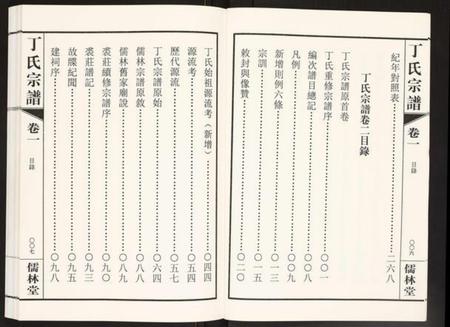 丁氏宗譜
卷一
目錄
〇〇六
儒林堂
紀年對照表………二六八
丁氏宗譜卷二目錄
丁氏宗譜原首卷
丁氏重修宗譜序………〇〇一
編次譜目總記………〇〇八
凡例………〇〇九
新增則例六條………〇一三
宗訓………〇一五
敕封與像贊………〇二〇
丁氏始祖源流考(新增)………〇四四
源流考………〇五四
歷代源流………〇五七
丁氏宗譜原始………〇六四
儒林宗譜原敘………〇八八
儒林舊家廟說………〇八九
裘莊續修宗譜序………〇九〇
裘莊譜記………〇九三
故牒紀聞………〇九五
建祠序………〇九八
丁氏宗譜
卷一
目錄
〇〇七
儒林堂